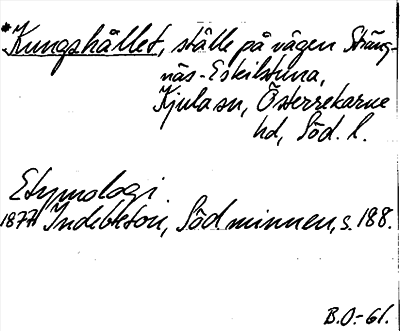 *Kungshållet, ställe på vägen Sträng-
näs-Eskilstuna,
Kjula sn, Österrekarne
hd, Söd. l.
Etymologi.
1877 Indebetou, Söd minnen, s. 188.
B.O.-61.